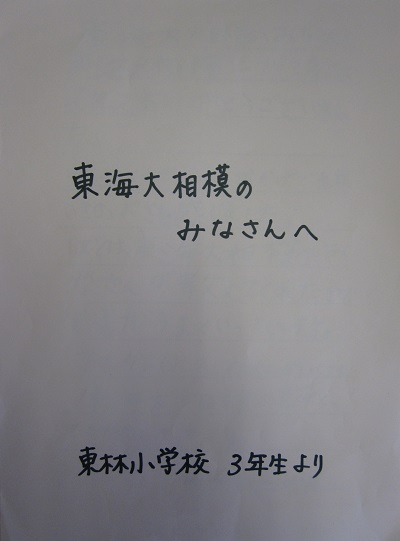 東海大相模の
みなさんへ
東林小学校 3年生より